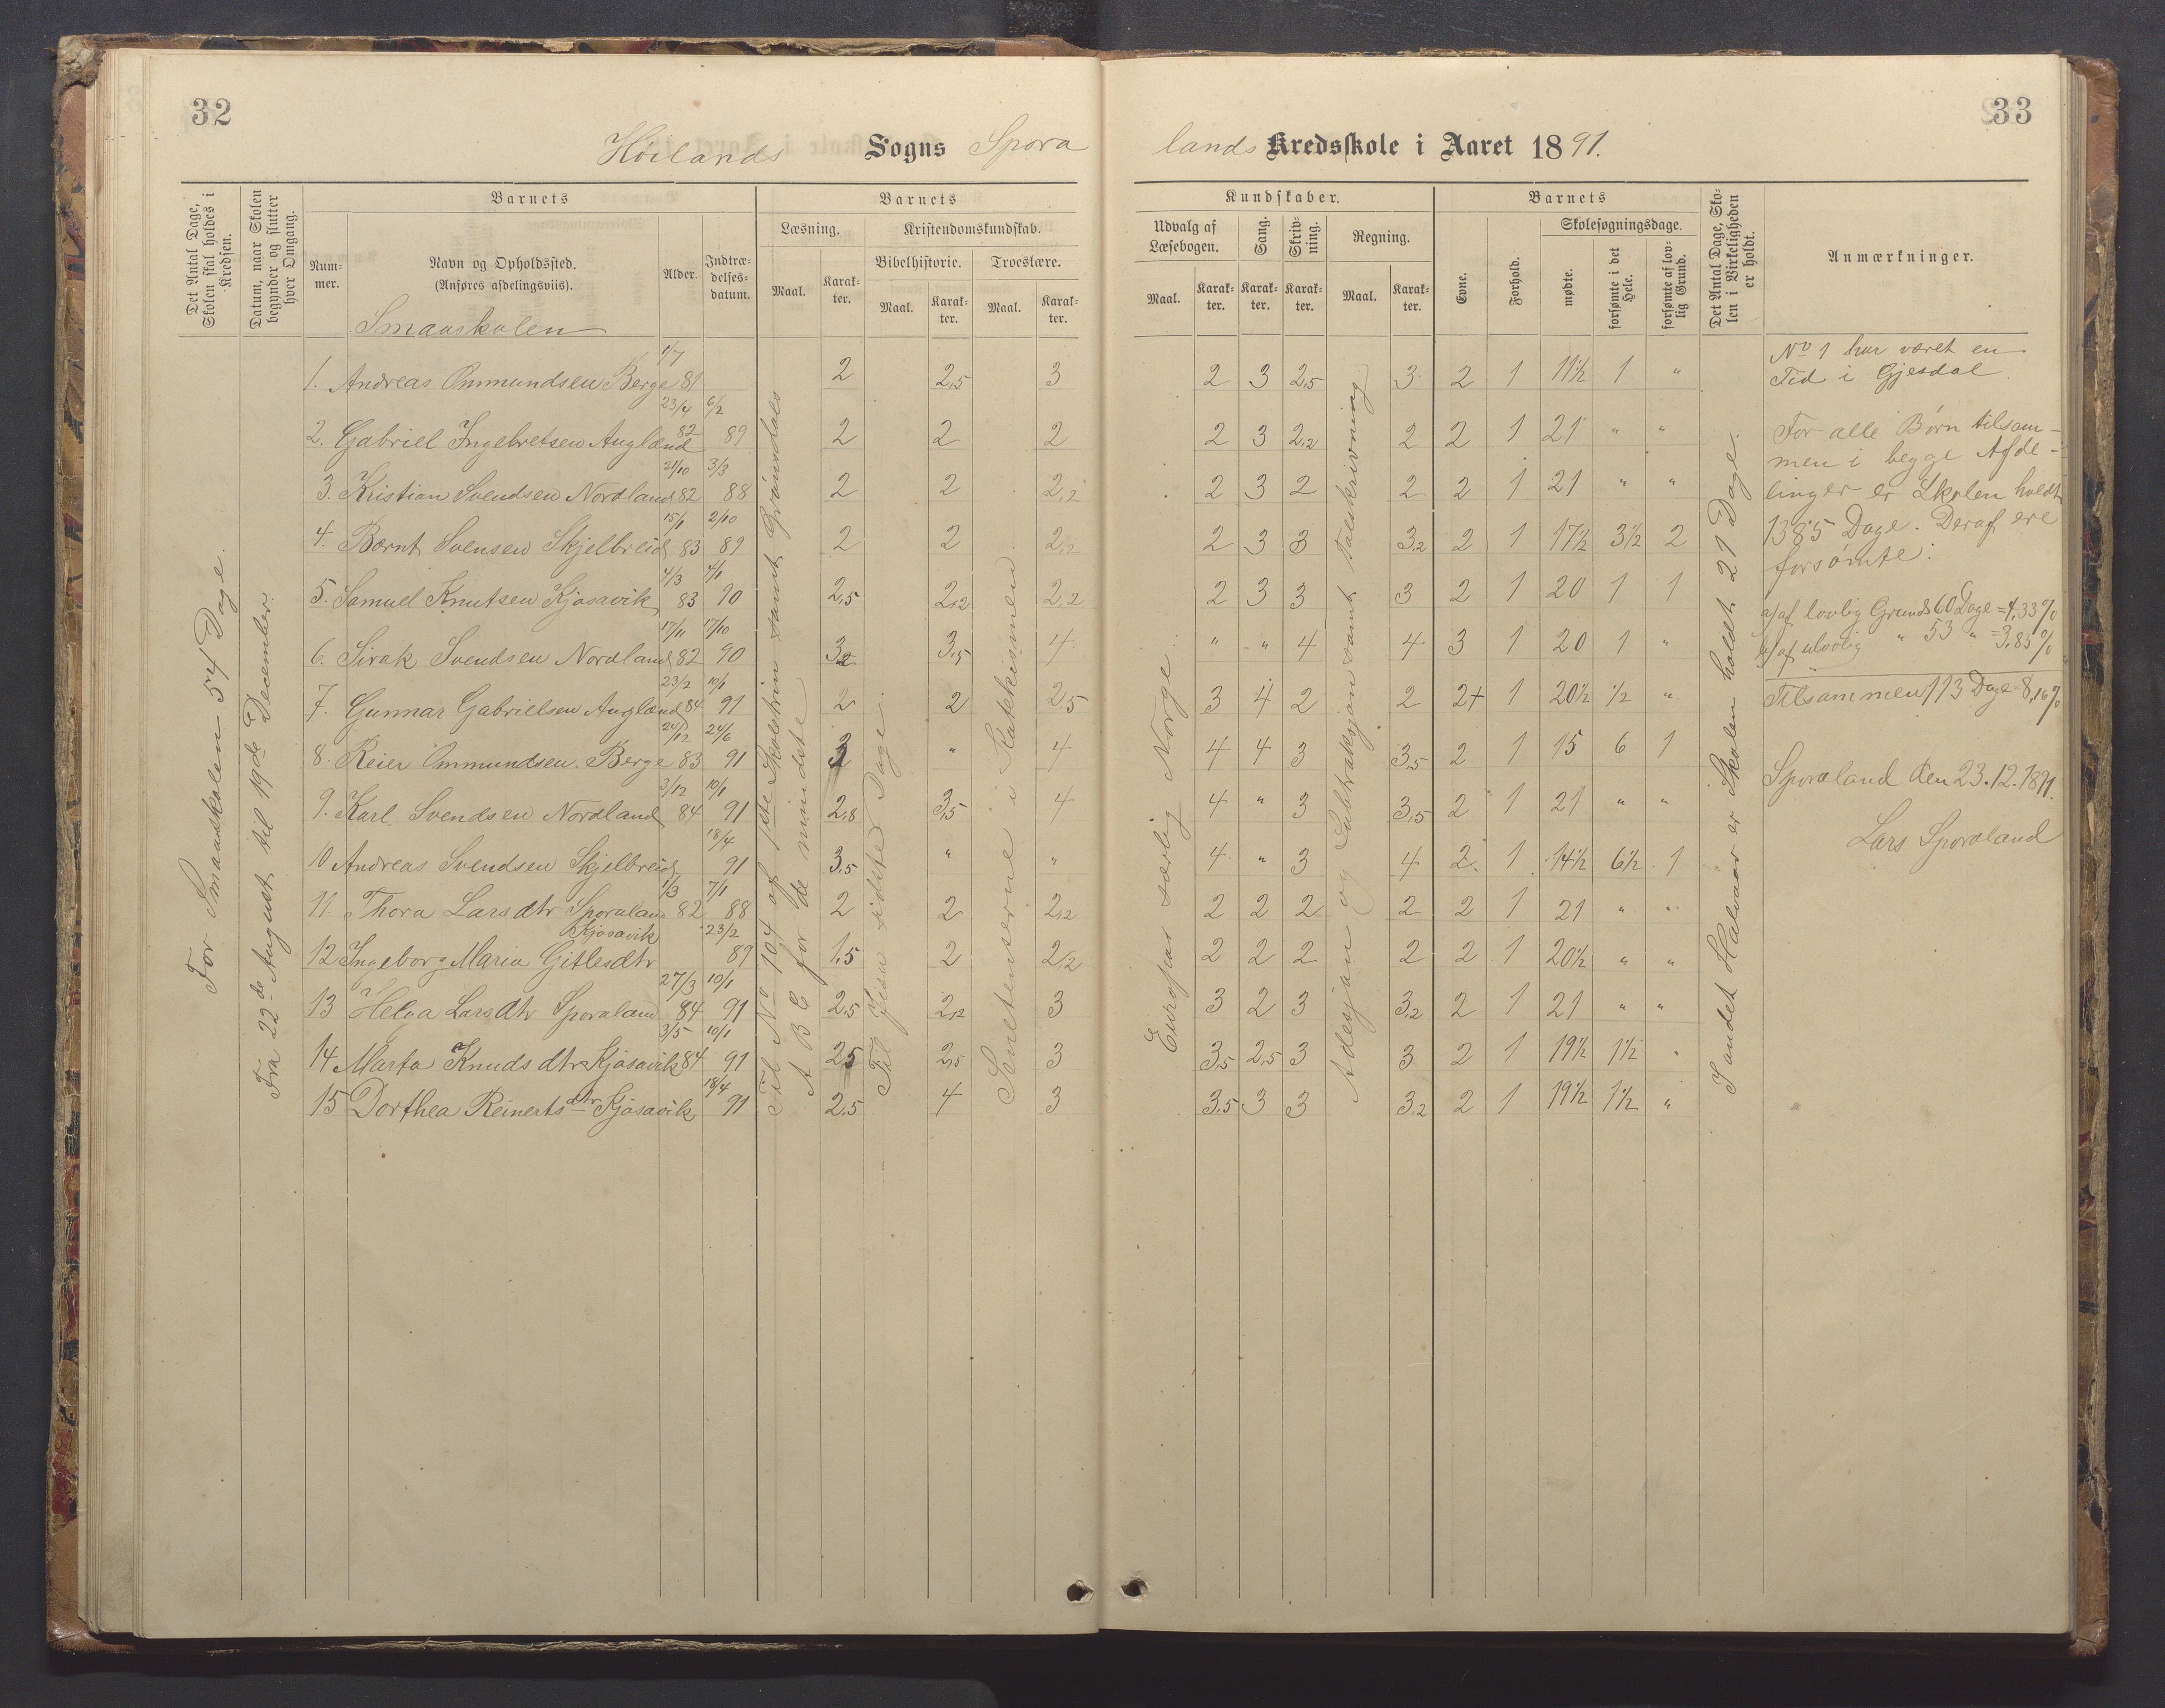 32
33
Høilands Sogns Spora
lands Kredsskole i Aaret 1891.
Det Antal Dage, Skolen skal holdes i Kredsen.
Datum, naar Skolen begynder og slutter hver Omgang.
Barnets
Barnets
Kundskaber.
Barnets
Det Antal Dage, Skolen i Virkeligheden er holdt.
Anmærkninger.
Læsning.
Kristendomskundskab.
Udvalg af Læsebogen.
Sang.
Skrivning.
Regning.
Evne.
Forhold.
Skolesøgningsdage.
Nummer.
Navn og Opholdssted.
(Anføres afdelingsviis).
Alder.
Indtrædelsesdatum.
Maal.
Karakter.
Bibelhistorie.
Troeslære.
Maal.
Karakter.
Maal.
Karakter.
Maal.
Karakter.
Karakter.
Karakter.
Maal.
Karakter.
mødte.
forsømte i det Hele.
forsømte af lovlig Grund.
Smaaskolen
For Smaaskolen 54 Dage.
Fra 22de August til 19de December.
Til No 104 af 1ste Skoletrin samt Grønsdals
A B C for de mindste
Til Jisu sidste Dage.
Senetenserne i Katekismen
Europa særlig Norge.
Adesjon og Subtraksjon samt Talskrivning
I andet Halvaar er Skolen holdt 21 Dage.
1. Andreas Ommundsen Berge 1/7 81 2 2,5 3 2 3 2,5 3 2 1 11½ 1 "
2. Gabriel Ingebretsen Auglænd 23/4 82 6/2 89 2 2 2 2 3 2,2 2 2 1 21 " "
3. Kristian Svendsen Nordland 21/10 82 3/3 88 2 2 2,2 2 3 2 2 2 1 21 " "
4. Bernt Svensen Skjelbreid 15/1 83 2/10 89 2 2 2,2 2 3 3 3,2 2 1 17½ 3½ 2
5. Samuel Knutsen Kjosavik 4/3 83 4/1 90 2,5 2,2 2,2 2 3 3 3 2 1 20 1 1
6. Sirak Svendsen Nordland 17/11 82 17/10 90 3,2 3,5 4 " " 4 4 3 1 20 1 "
7. Gunnar Gabrielsen Auglænd 23/2 84 10/1 91 2 2 2,5 3 4 2 2 2+ 1 20½ ½ "
8. Reier Ommundsen Berge 24/12 83 24/6 91 3 " 4 4 4 3 3,5 2 1 15 6 1
9. Karl Svendsen Nordland 3/12 84 10/1 91 2,8 3,5 4 4 " 3 3,5 2 1 21 " "
10 Andreas Svendsen Skjelbreid 18/4 91 3,5 " " 4 " 3 4 2 1 14½ 6½ 1
11. Thora Larsdtr Sporaland 1/3 82 7/1 88 2 2 2,2 2 2 2 2 2 1 21 " "
12 Ingeborg Maria Gitlesdtr Kjosavik 23/2 89 1,5 2 2,2 2 2 2 2 2 1 20½ " "
13 Helga Larsdtr Sporaland 27/3 84 10/1 91 2,5 2,2 3 3 2 3 3,2 2 1 21 " "
14 Marta Knudsdtr Kjosavik 3/5 84 10/1 91 2,5 2,5 3 3,5 2,5 3 3 2 1 19½ 1½ "
15 Dorthea Reinertsdtr Kjosavik 18/4 91 2,5 4 3 3,5 3 3 3,2 2 1 19½ 1½ "
No 1 har været en
Tid i Gjesdal.
For alle Børn tilsam-
men i begge Afde-
linger er Skolen holdt
1385 Dage. Deraf ere
forsømte:
a) af lovlig Grunds 60 Dage = 4,33 %
b) af ulovlig " 53 " = 3,83 %
Tilsammen 113 Dage = 8,16 %
Sporaland den 23.12.1891.
Lars Sporaland